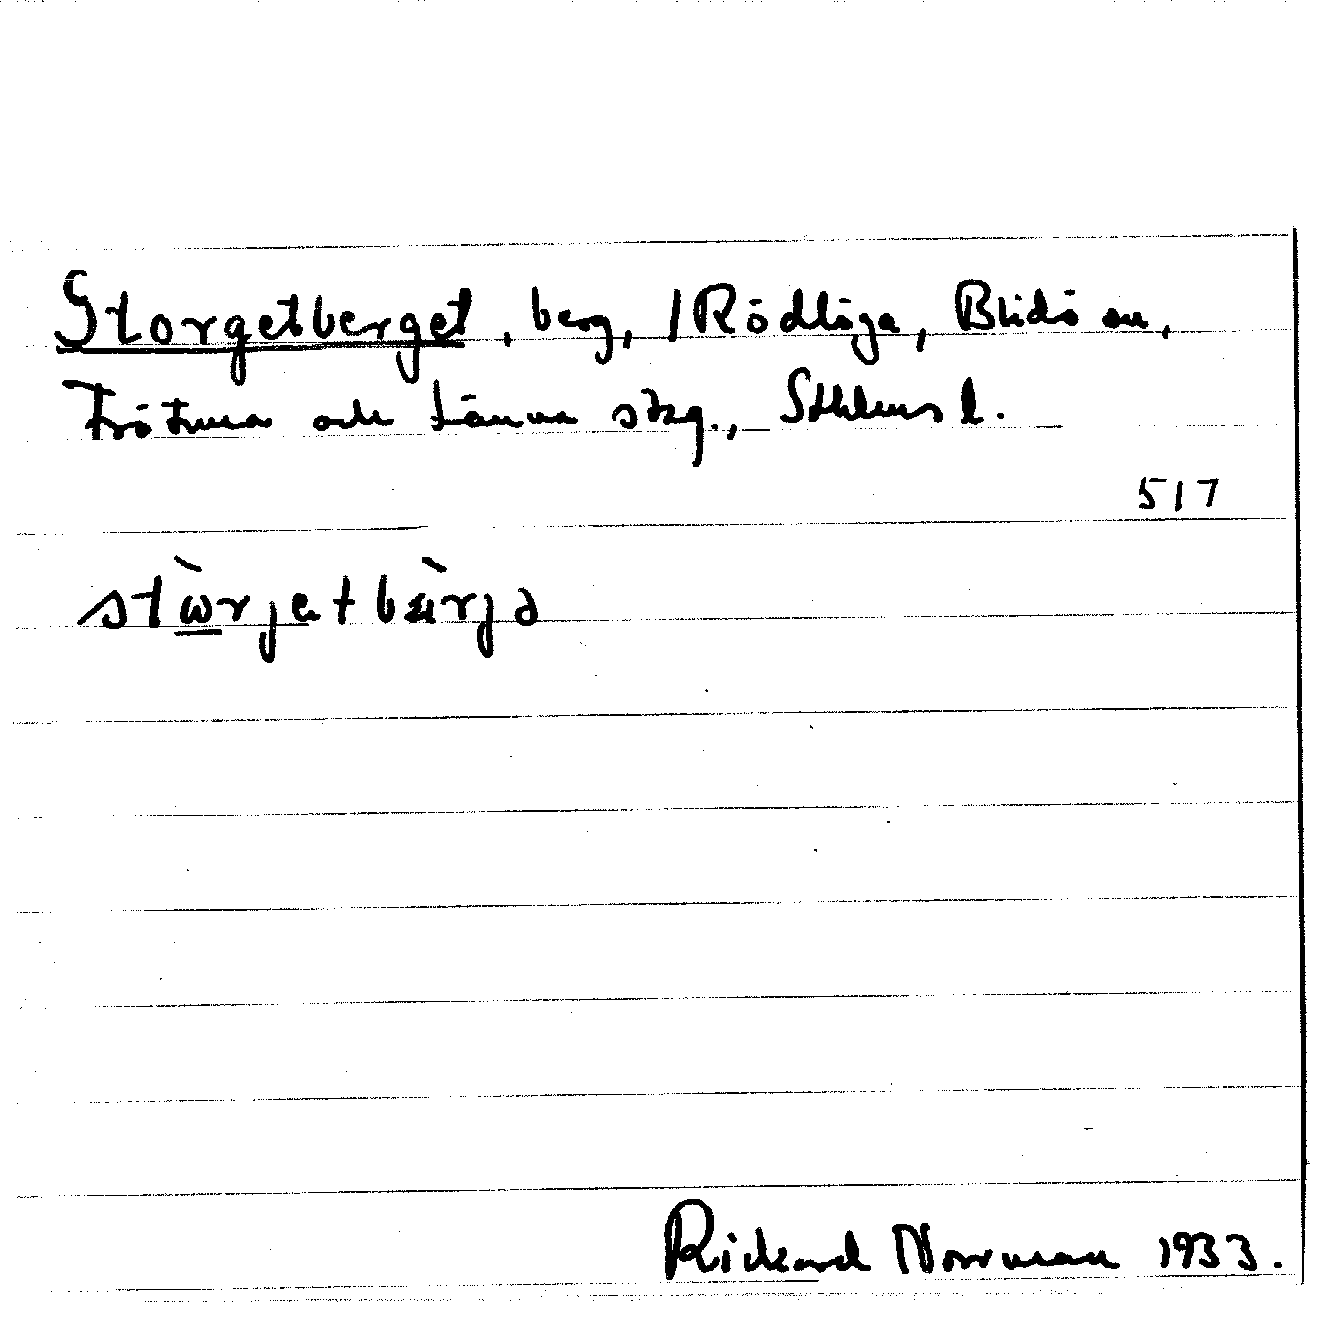 Storgetsberget, berg, / Rödlöga, Blidö sn,
Frötuna och Länna skg., Sthlms l.
517
stὼ̲rjetbæ̀rjə
Rickard Norrman 1933.